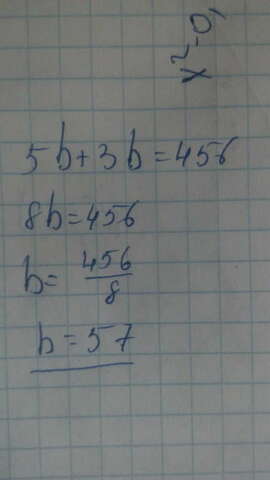 x²-0,
5b+3b=456
8b=456
b= 456/8
b=57